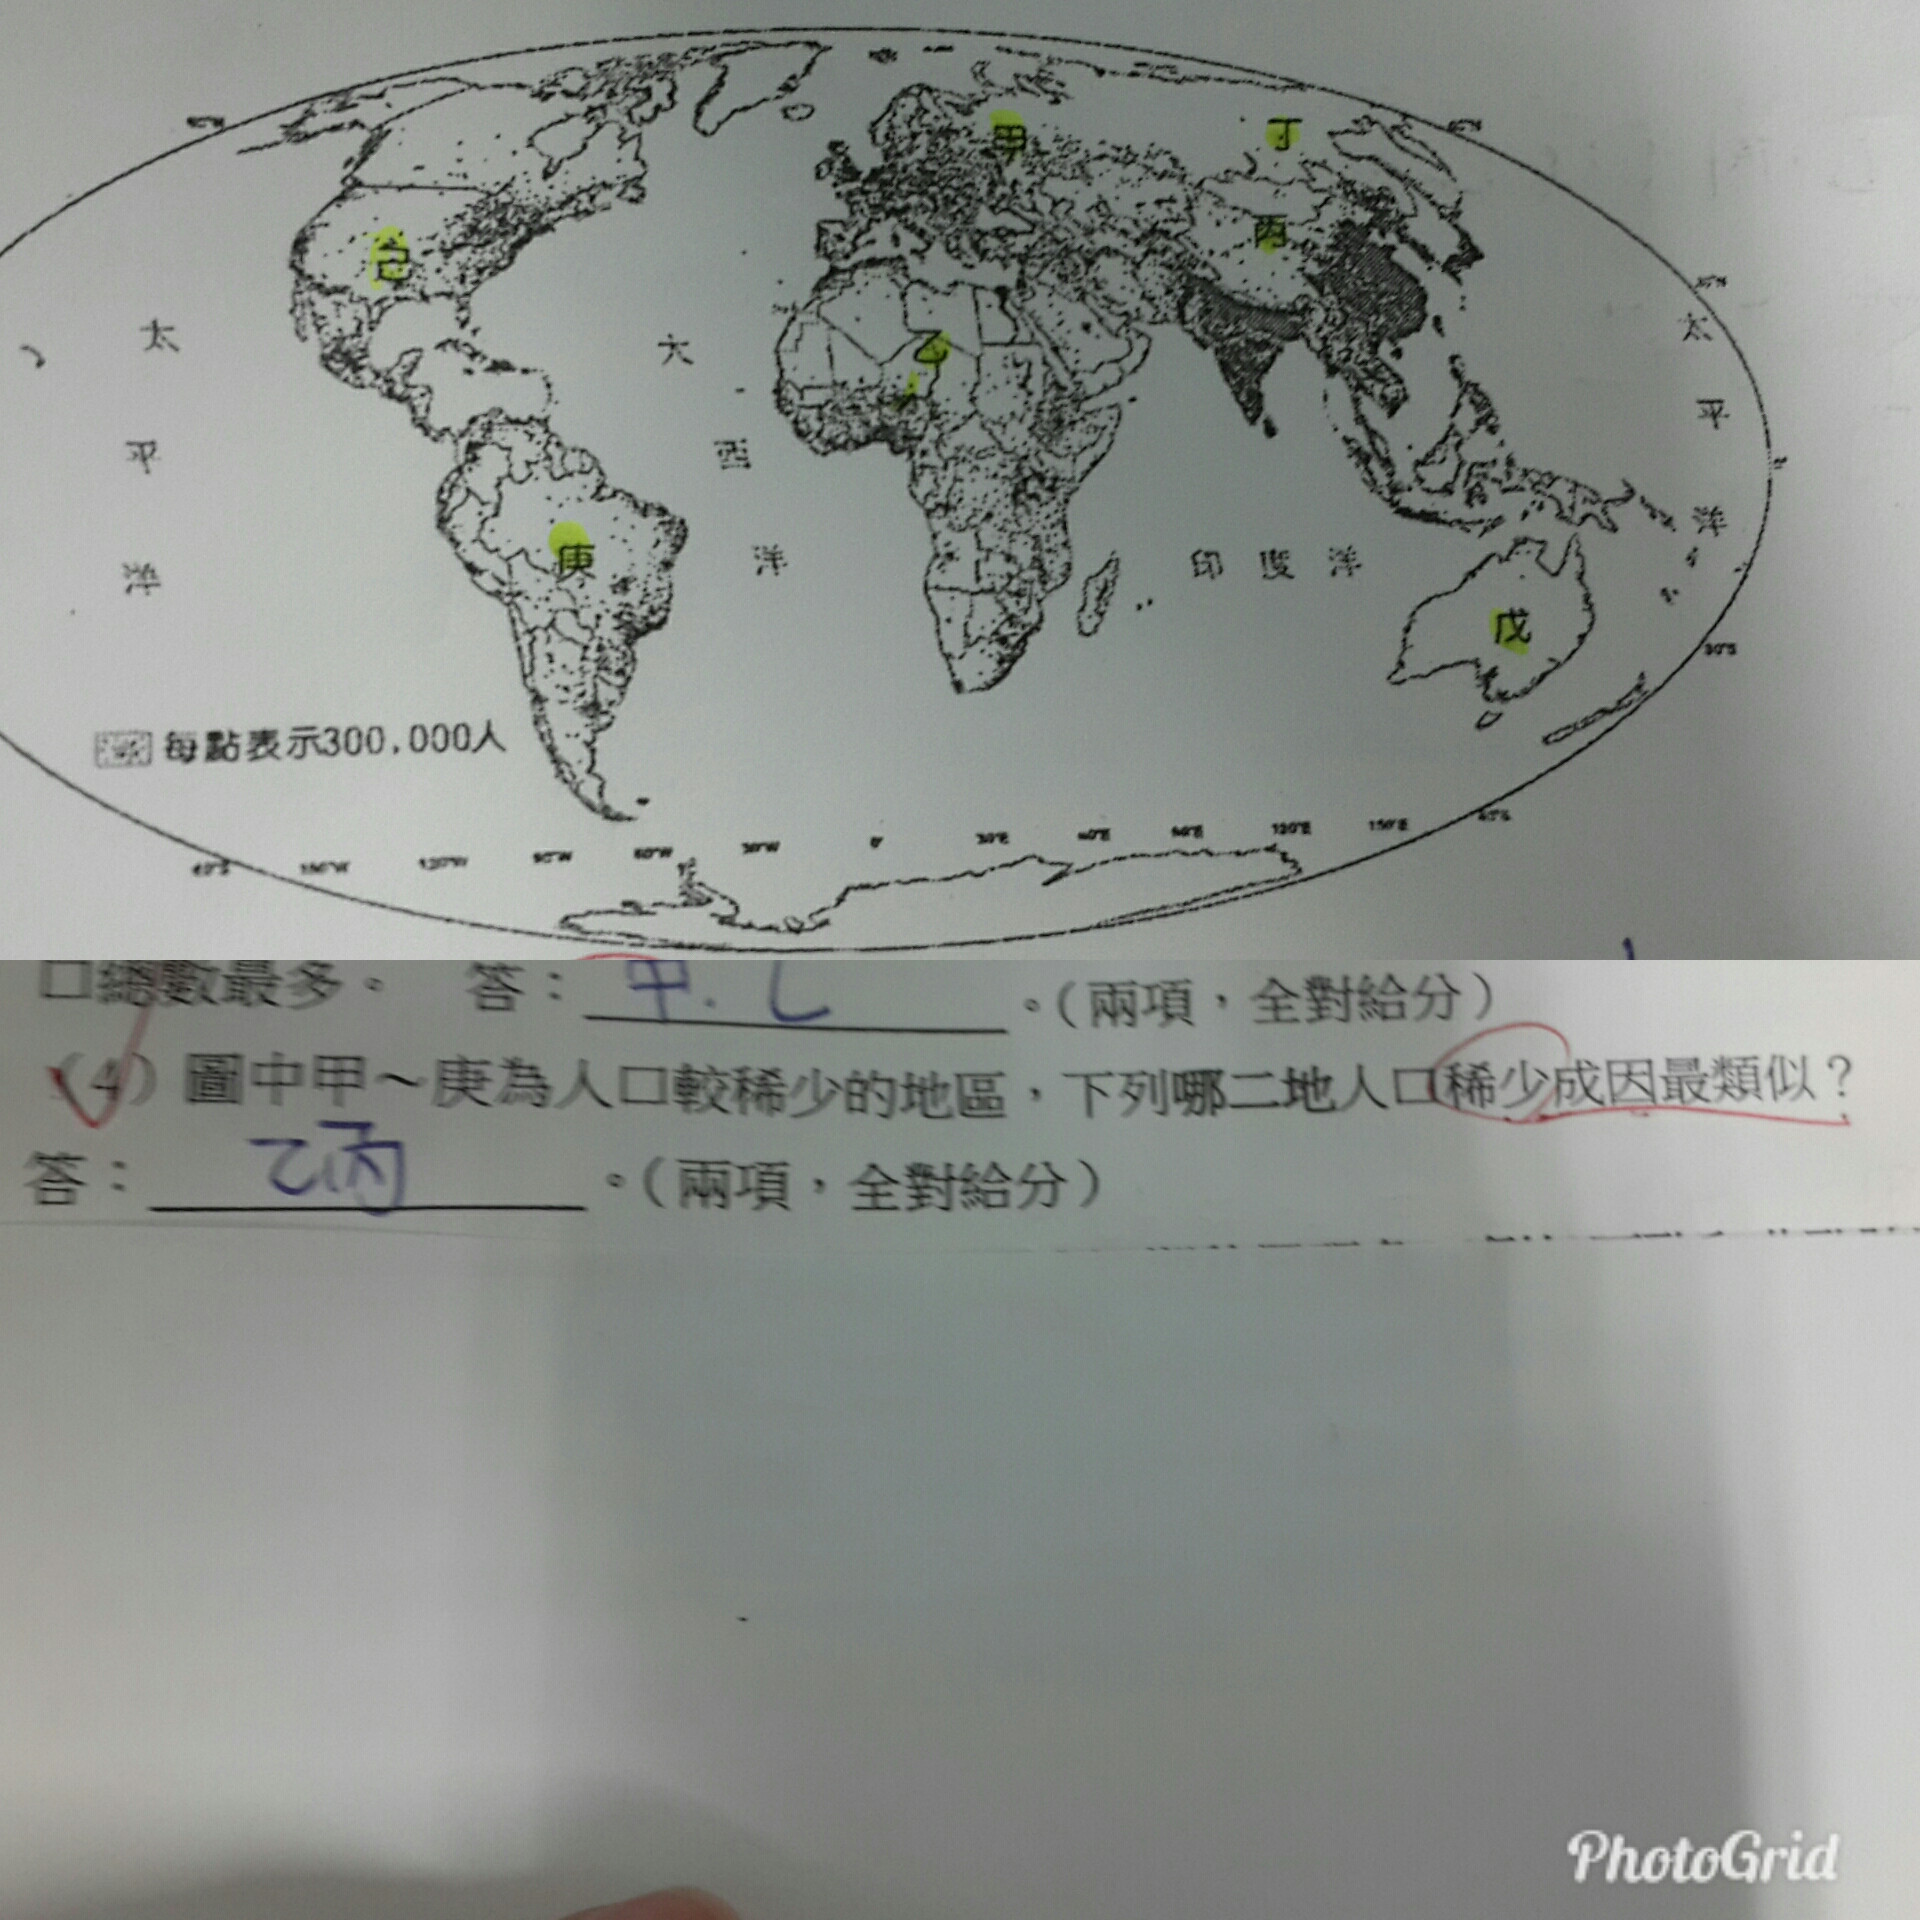 甲
丁
己
丙
乙
太
平
洋
大
西
洋
太
平
洋
庚
印度洋
戊
30°S
每點表示300,000人
60°S 150°W 120°W 90°W 60°W 30°W 0° 30°E 60°E 90°E 120°E 150°E 60°S
口總數最多。 答：甲.乙。(兩項，全對給分)
(4) 圖中甲～庚為人口較稀少的地區，下列哪二地人口稀少成因最類似？
答：乙丙。(兩項，全對給分)
PhotoGrid